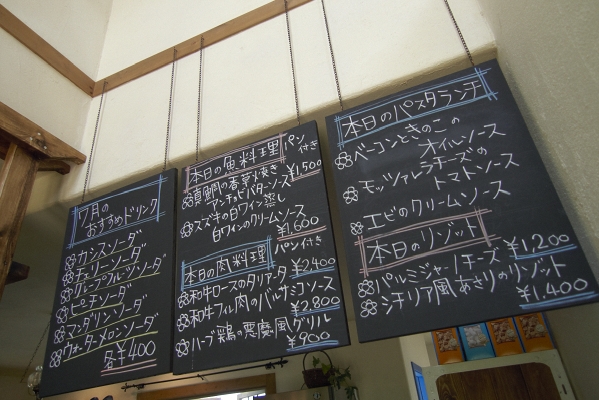 7月の
おすすめドリンク
カシスソーダ
チェリーソーダ
グレープフルーツソーダ
ピーチソーダ
マンダリンソーダ
ウォーターメロンソーダ
各¥400
本日の魚料理 パン付き
真鯛の香草焼き
アンチョビバターソース
¥1,500
スズキの白ワイン蒸し
白ワインのクリームソース
¥1,600
本日の肉料理 パン付き
和牛ロースのタリアータ ¥2400
和牛フィレ肉のバルサミコソース
¥2,800
ハーブ鶏の悪魔風グリル
¥900
本日のパスタランチ
ベーコンときのこの
オイルソース
モッツァレラチーズの
トマトソース
エビのクリームソース
本日のリゾット ¥1,200
パルミジャーノチーズ
シチリア風あさりのリゾット
¥1,400